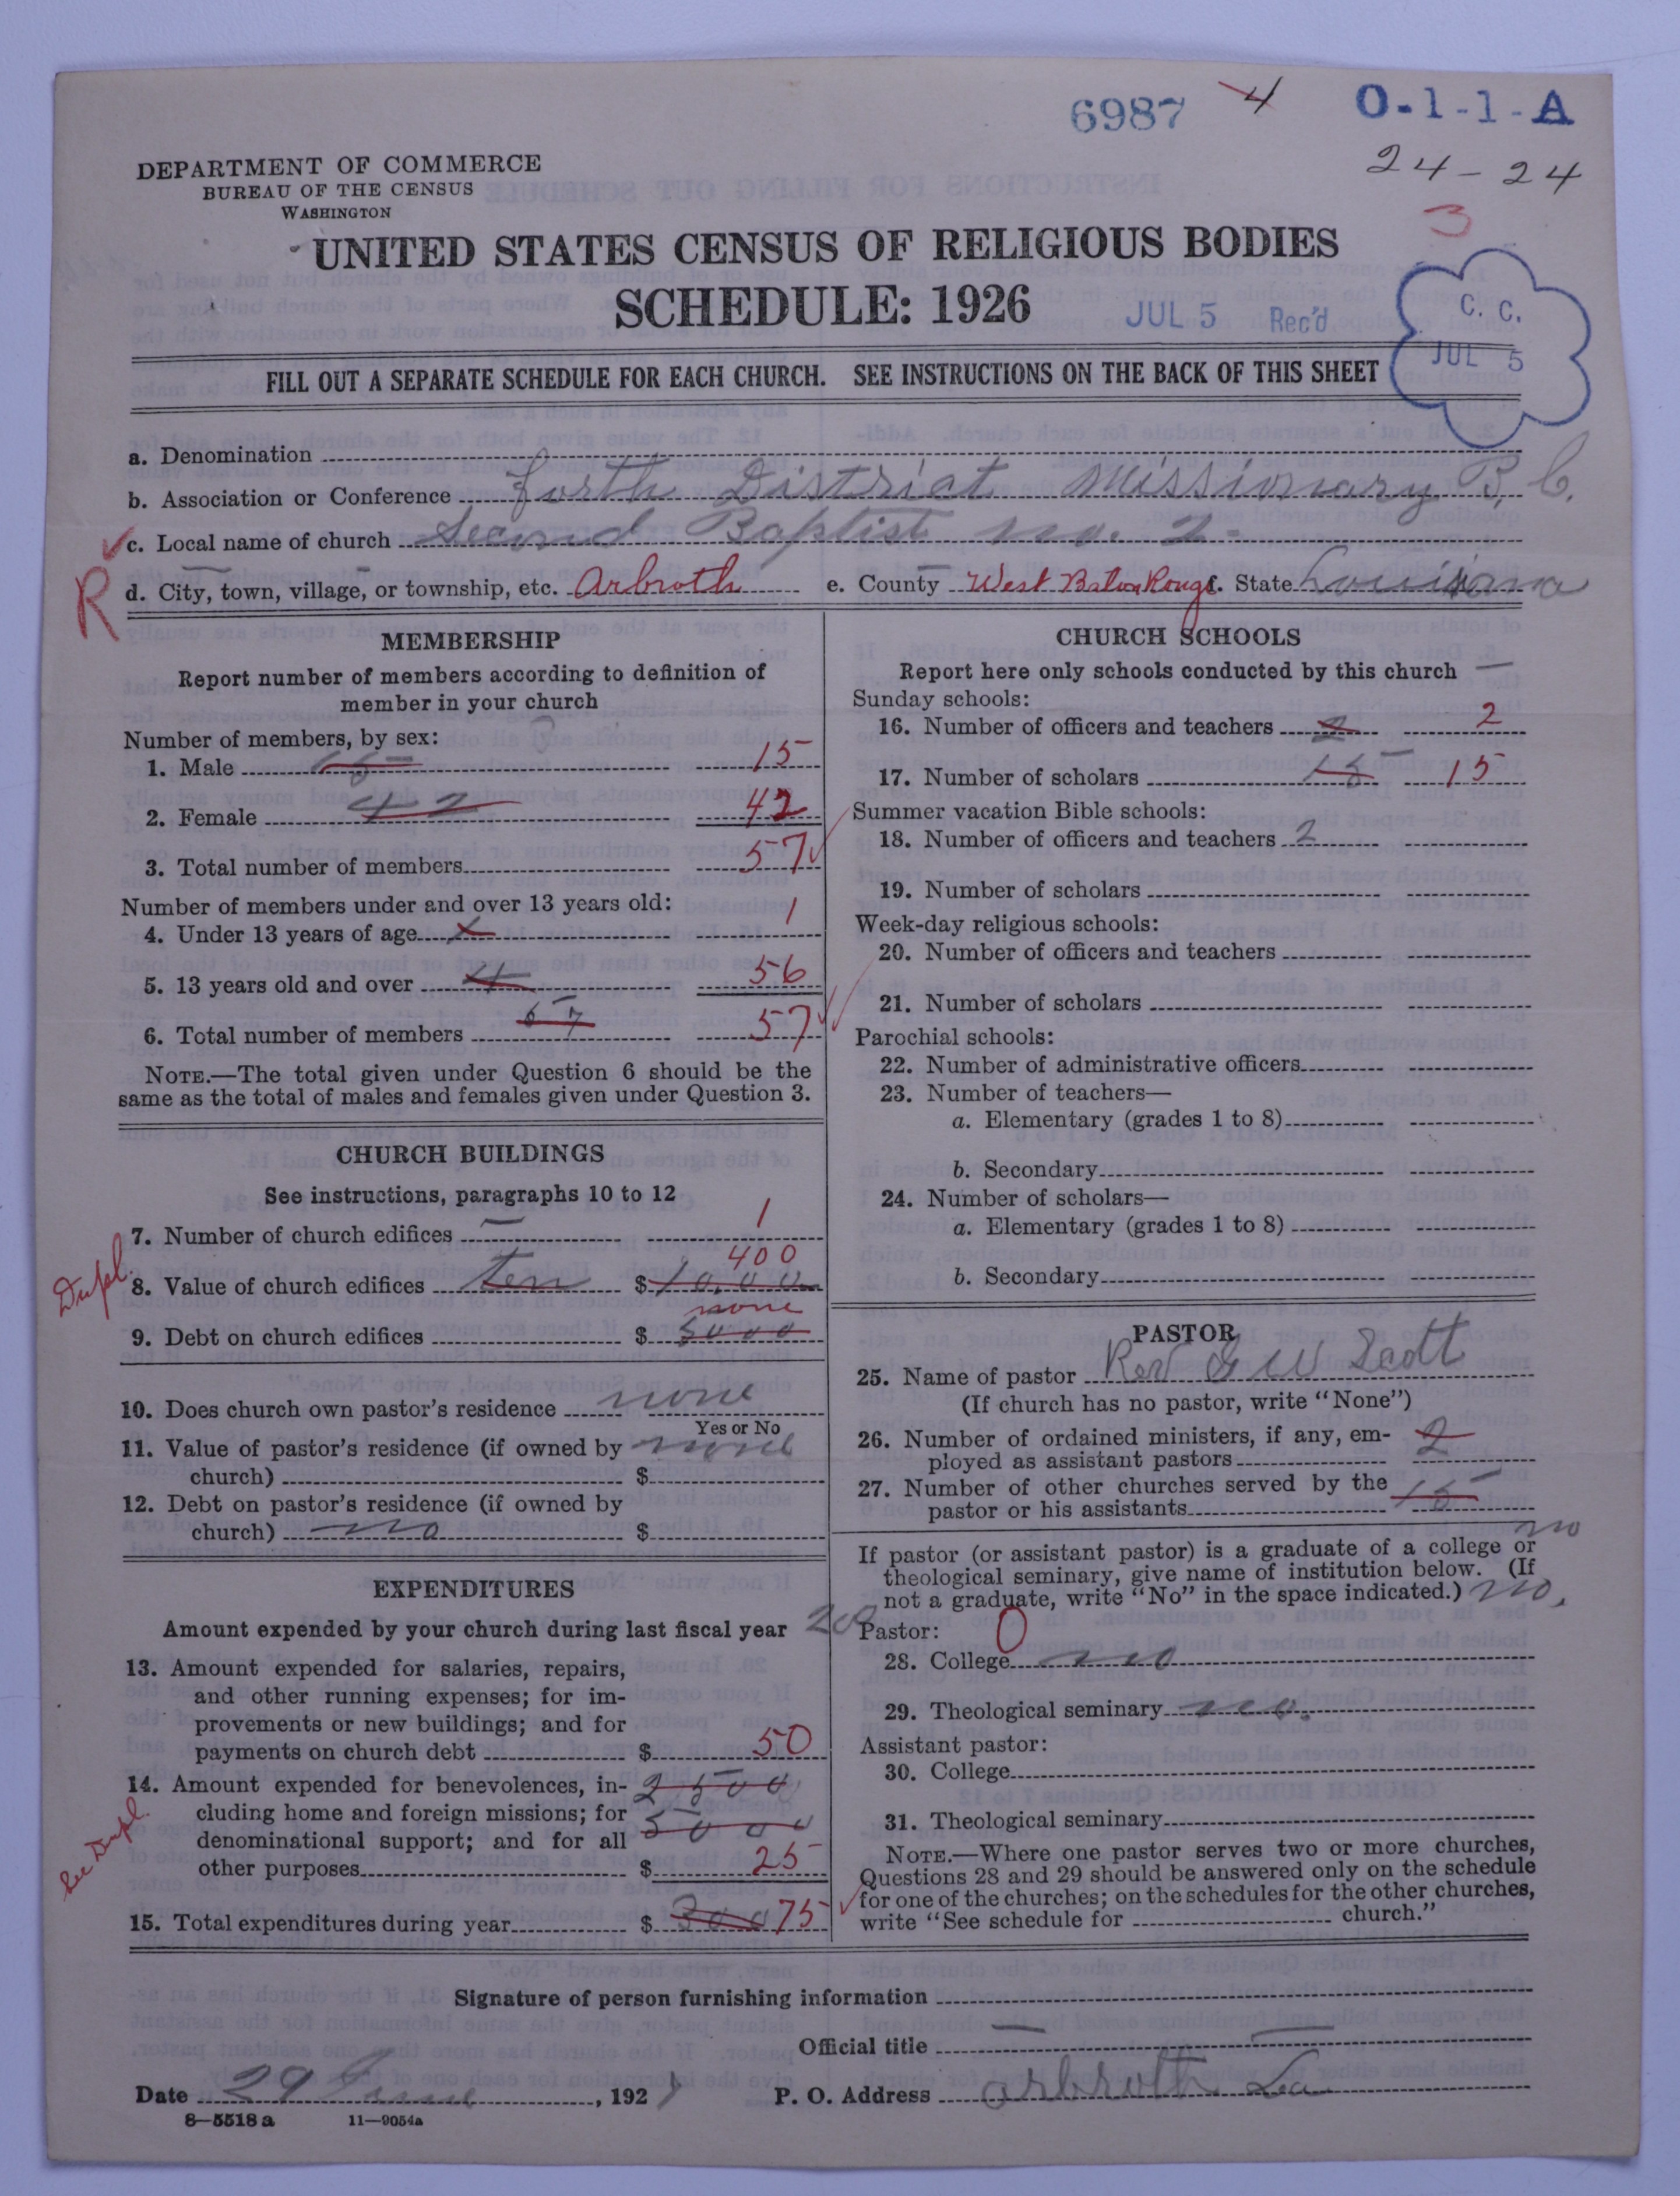 6987 4 O-1-1-A
24-24
3
DEPARTMENT OF COMMERCE
BUREAU OF THE CENSUS
WASHINGTON
UNITED STATES CENSUS OF RELIGIOUS BODIES
SCHEDULE: 1926
JUL 5 Rec'd
C. C.
JUL 5
FILL OUT A SEPARATE SCHEDULE FOR EACH CHURCH. SEE INSTRUCTIONS ON THE BACK OF THIS SHEET
a. Denomination
b. Association or Conference forth District Missionary B. C.
c. Local name of church Second Baptist no. 2-
R
d. City, town, village, or township, etc. Arbroth e. County West Baton Rouge f. State Louisiana
MEMBERSHIP
Report number of members according to definition of
member in your church
Number of members, by sex:
1. Male 15 15
2. Female 42 42
3. Total number of members 57
Number of members under and over 13 years old:
4. Under 13 years of age 1
5. 13 years old and over 4 56
6. Total number of members 57 57
NOTE.—The total given under Question 6 should be the
same as the total of males and females given under Question 3.
CHURCH BUILDINGS
See instructions, paragraphs 10 to 12
7. Number of church edifices 1
400
Dupl. 8. Value of church edifices ten $ 10.00
none
9. Debt on church edifices $ 5000
10. Does church own pastor's residence none
Yes or No
11. Value of pastor's residence (if owned by none
church) $
12. Debt on pastor's residence (if owned by
church) no $
EXPENDITURES
Amount expended by your church during last fiscal year 200
13. Amount expended for salaries, repairs,
and other running expenses; for im-
provements or new buildings; and for
payments on church debt $ 50
14. Amount expended for benevolences, in- 2500
cluding home and foreign missions; for 5000
denominational support; and for all
other purposes $ 25
See Dupl.
15. Total expenditures during year $ 300 75
CHURCH SCHOOLS
Report here only schools conducted by this church
Sunday schools:
16. Number of officers and teachers 2 2
17. Number of scholars 15 15
Summer vacation Bible schools:
18. Number of officers and teachers 2
19. Number of scholars
Week-day religious schools:
20. Number of officers and teachers
21. Number of scholars
Parochial schools:
22. Number of administrative officers
23. Number of teachers—
a. Elementary (grades 1 to 8)
b. Secondary
24. Number of scholars—
a. Elementary (grades 1 to 8)
b. Secondary
PASTOR
25. Name of pastor Rev G W Scott
(If church has no pastor, write "None")
26. Number of ordained ministers, if any, em- 2
ployed as assistant pastors
27. Number of other churches served by the 15
pastor or his assistants
no
If pastor (or assistant pastor) is a graduate of a college or
theological seminary, give name of institution below. (If
not a graduate, write "No" in the space indicated.) no.
Pastor: 0
28. College no
29. Theological seminary no.
Assistant pastor:
30. College
31. Theological seminary
NOTE.—Where one pastor serves two or more churches,
Questions 28 and 29 should be answered only on the schedule
for one of the churches; on the schedules for the other churches,
write "See schedule for church."
Signature of person furnishing information
Official title
Date 29 June, 1927 P. O. Address arbroth La
8—5518 a 11—9054a